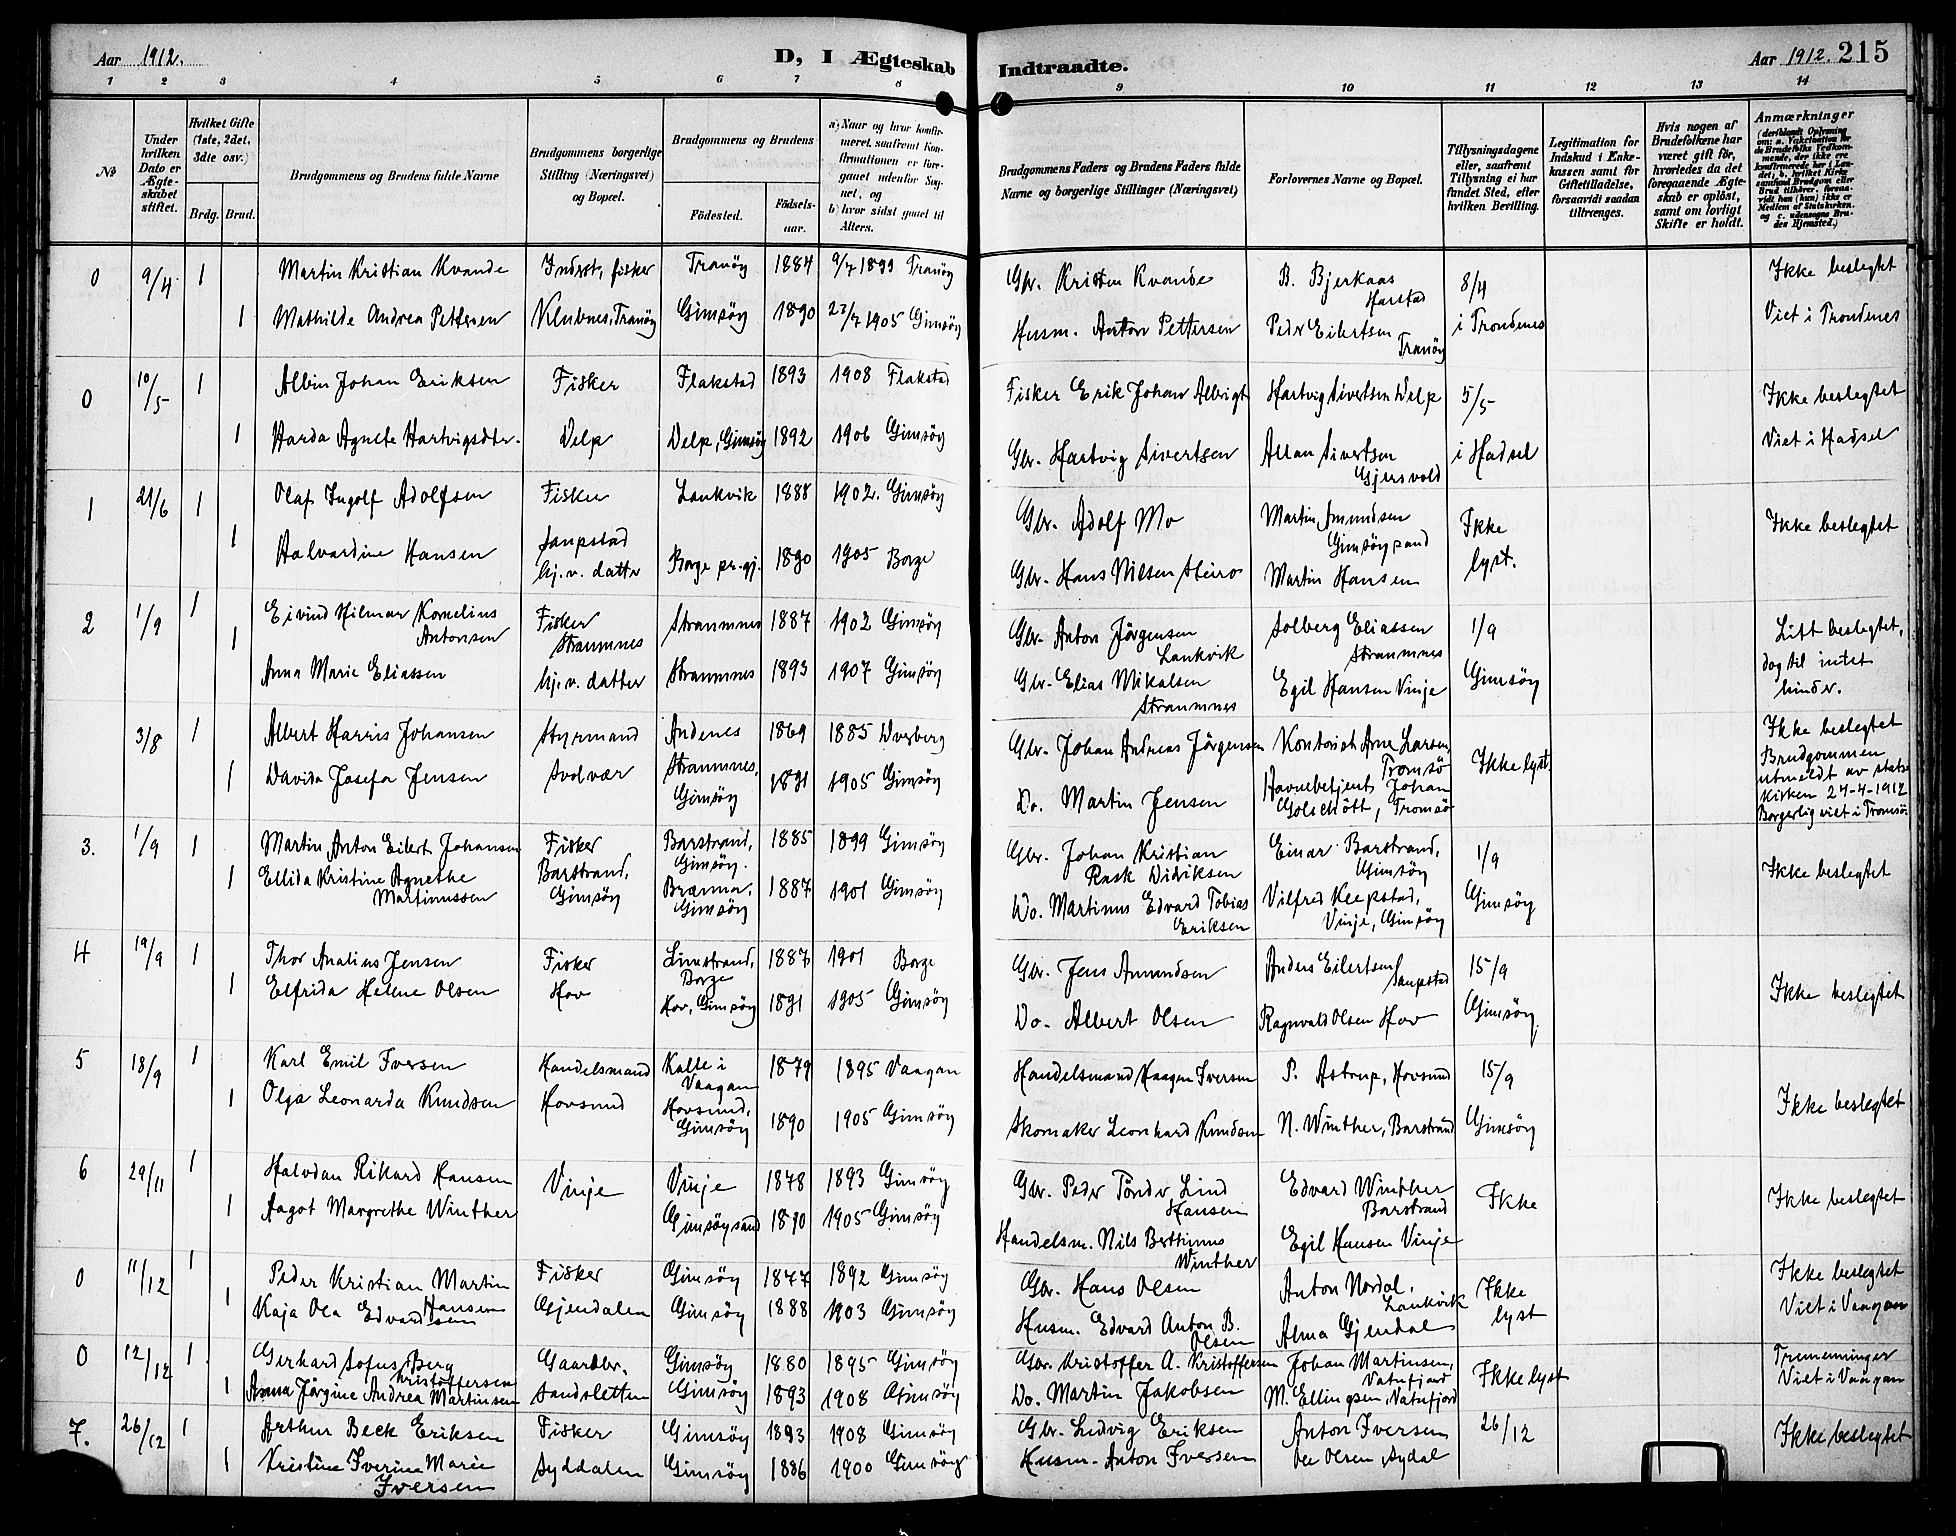 Aar 1912.
D, I Ægteskab Indtraadte.
Aar 1912. 215
1 2 3 4 5 6 7 8 9 10 11 12 13 14
No
Under hvilken Dato er Ægteskabet stiftet.
Hvilket Gifte (1ste, 2det, 3dte osv.)
Brdg. Brud.
Brudgommens og Brudens fulde Navne
Brudgommens borgerlige Stilling (Næringsvei) og Bopæl.
Brudgommens og Brudens
Födested. Födselsaar.
a) Naar og hvor konfirmeret, saafremt Konfirmationen er foregaaet udenfor Sognet, og
b) hvor sidst gaaet til Alters.
Brudgommens Faders og Brudens Faders fulde Navne og borgerlige Stillinger (Næringsvei)
Forlovernes Navne og Bopæl.
Tillysningsdagene eller, saafremt Tillysning ei har fundet Sted, efter hvilken Bevilling.
Legitimation for Indskud i Enkekassen samt for Giftetilladelse, forsaavidt saadan tiltrænges.
Hvis nogen af Brudefolkene har været gift för, hvorledes da det foregaaende Ægteskab er oplöst, samt om lovligt Skifte er holdt.
Anmærkninger
0 9/4 1 Martin Kristian Kvande Indrst, fisker Tranöy 1884 9/7 1899 Tranöy Gbr. Kristen Kvande B. Bjerkaas Harstad 8/4 Ikke beslegtet
1 Mathilde Andrea Pettersen Klubnes, Tranöy Gimsöy 1890 23/7 1905 Gimsöy Husm. Anton Pettersen Peder Eilertsen Tranöy i Trondenes Viet i Trondenes
0 10/5 1 Albin Johan Eriksen Fisker Flakstad 1893 1908 Flakstad Fisker Erik Johan Albrigt Hartvig Sivertsen Delp 5/5 Ikke beslegtet
1 Harda Agnete Hartvigsdtr. Delp Delp, Gimsöy 1892 1906 Gimsöy Gbr. Hartvig Sivertsen Allan Sivertsen Gjersvold i Hadsel Viet i Hadsel
1 21/6 1 Olaf Ingolf Adolfsen Fisker Laukvik 1888 1902. Gimsöy Gbr. Adolf Mo Martin Amundsen Gimsöysand Ikke Ikke beslegtet
1 Halvardine Hansen Saupstad hj.v. datter Borge pr.gj. 1890 1905 Borge Gbr. Hans Nilsen Steiro Martin Hansen lyst.
2 1/9 1 Eivind Hilmar Kornelius Antonsen Fisker Straumnes Straumnes 1887 1902 Gimsöy Gbr. Anton Jörgensen Laukvik Solberg Eliassen Straumnes 1/9 Litt beslegtet,
1 Anna Marie Eliassen hj.v. datter Straumnes 1893 1907 Gimsöy Gbr. Elias Mikalsen Straumnes Egil Hansen Vinje Gimsöy dog til intet hinder.
3/8 1 Albert Harris Johansen Styrmand Andenes 1869 1885 Dverberg Gbr. Johan Andreas Jörgensen Kontorist Arne Larsen, Tromsö Ikke lyst. Ikke beslegtet
1 Davida Josefa Jensen Svolvær Straumnes, Gimsöy 1891 1905 Gimsöy Do. Martin Jensen Havnebetjent Johan Golschött, Tromsö Brudgommen utmeldt av statskirken 24-4-1912 Borgerlig viet i Tromsö.
3. 1/9 1 Martin Anton Eilert Johansen Fisker Barstrand, Gimsöy. 1885 1899 Gimsöy Gbr. Johan Kristian Rask Didriksen Einar Barstrand, Gimsöy 1/9 Ikke beslegtet
1 Ellida Kristine Agnethe Martinussen Barstrand, Gimsöy Brænna, Gimsöy 1887 1901 Gimsöy Do. Martinus Edvard Tobias Eriksen Vilfred Kleppstad, Vinje, Gimsöy Gimsöy
4 19/9 1 Thor Analius Jensen Fisker Limstrand, Borge 1887 1901 Borge Gbr. Jens Amundsen Anders Eilertsen Saupstad 15/9 Ikke beslegtet
1 Elfrida Helene Olsen Hov Hov, Gimsöy 1891 1905 Gimsöy Do. Albert Olsen Ragnvald Olsen Hov Gimsöy
5 18/9 1 Karl Emil Iversen Handelsmand Kalle i Vaagan 1879 1895 Vaagan Handelsmand Haagen Iversen P. Astrup, Hovsund 15/9 Ikke beslegtet
1 Olga Leonarda Knudsen Hovsund Hovsund, Gimsöy 1890 1905 Gimsöy Skomaker Leonhard Knudsen N. Winther, Barstrand Gimsöy
6 29/11 1 Halvdan Rikard Hansen Vinje Vinje 1878 1893 Gimsöy Gbr. Peder Tönder Lind Hansen Edvard Winther Barstrand Ikke Ikke beslegtet
1 Aagot Margrethe Winther Gimsöysand 1890 1905 Gimsöy Handelsm. Nils Berthinus Winther Egil Hansen Vinje
0 11/12 1 Peder Kristian Martin Hansen Fisker Gimsöy 1877 1892 Gimsöy Gbr. Hans Olsen Anton Nordal, Laukvik Ikke Ikke beslegtet
1 Kaja Ola Edvardsen Gjendalen Gimsöy 1888 1903 Gimsöy Husm. Edvard Anton B. Olsen Alma Gjendal lyst Viet i Vaagan
0 12/12 1 Gerhard Sofus Berg Kristoffersen Gaardbr. Gimsöy 1880 1895 Gimsöy Gbr. Kristoffer A. Kristoffersen Johan Martinsen, Vatnfjord Ikke lyst Tremenninger
1 Anna Jörgine Andrea Martinsen Sandsletten Gimsöy 1893 1908 Gimsöy Do. Martin Jakobsen M. Ellingsen, Vatnfjord Viet i Vaagan
7. 26/12 1 Arthur Beck Eriksen Fisker Gimsöy 1893 1908 Gimsöy Gbr. Ludvig Eriksen Anton Iversen 26/12 Ikke beslegtet
1 Kristine Iverine Marie Iversen Syddalen Gimsöy 1886 1900 Gimsöy Husm. Anton Iversen Ole Olsen Sydal